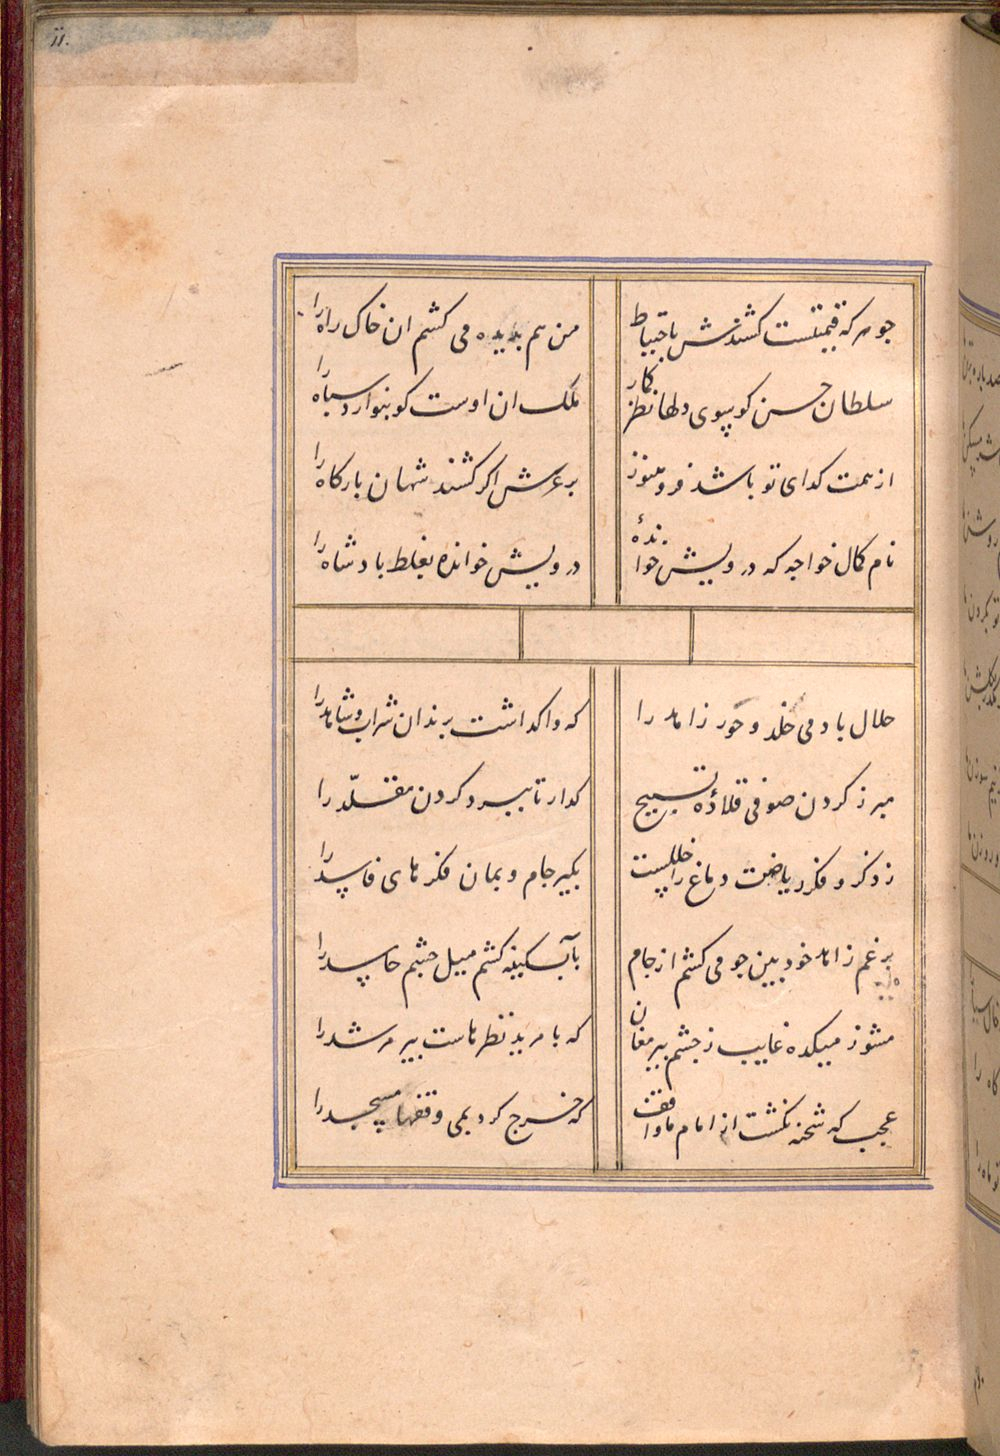 جوهر که قیمتیست کشندش باحتیاط من هم بدیده می کشم ان خاک راه را
سلطان حسن کو بسوی دلها نظر کار ملک ان اوست کو بنوازد سپاه را
از همت کدای تو باشد فرو هنوز بر عرش اکر کشند شهان بارکاه را
نام کمال خواجه که درویش خوانده درویش خوانده بغلط بادشاه را
حلال باد می خلد و حور زاهد را که واکداشت برندان شراب و شاهد را
مبر ز کردن صوفی قلادهٔ تسبیح کدار تا بمیرد کردن مقلّد را
ز ذکر و فکر ریاضت دماغ را خللیست بکیر جام و بمان فکرهای فاسد را
برغم زاهد خود بین جو می کشم از جام بآبکینه کشم میل جشم حاسد را
مشو ز میکده غایب ز جشم پیر مغان که با مرید نظرهاست پیر مرشد را
عجب که شحنه نکشت از امام ما واقف که خرج کرد بمی وقفهاء مسجد را